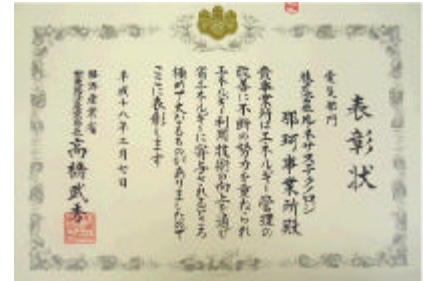 表彰状
電気部門
株式会社ルネサステクノロジ
那珂事業所殿
貴事業所はエネルギー管理の
改善に不断の努力を重ねられ
エネルギー利用技術の向上を通じ
省エネルギーに寄与されるところ
極めて大なるものがありましたので
ここに表彰します
平成十八年二月七日
経済産業省
高橋武秀